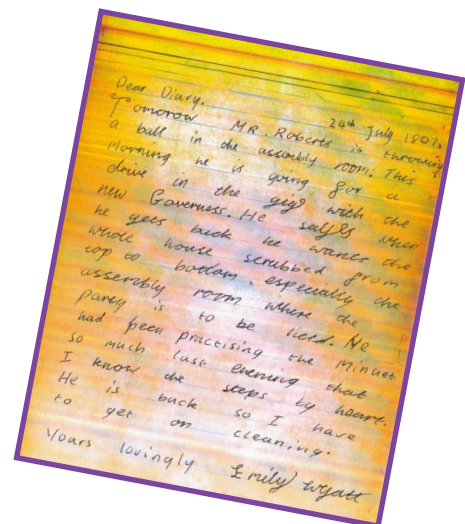 24th July 1807.
Dear Diary.
Tomorrow MR. Roberts is throwing
a ball in the assembly room. This
Morning he is going for a
drive in the gig with the
new Governess. He says when
he gets back he wants the
whole house scrubbed from
top to bottom, especially the
assembly room where the
party is to be held. He
had been practising the Minuet
so much last evening that
I know the steps by heart.
He is back so I have
to get on cleaning.
Yours lovingly Emily Wyatt